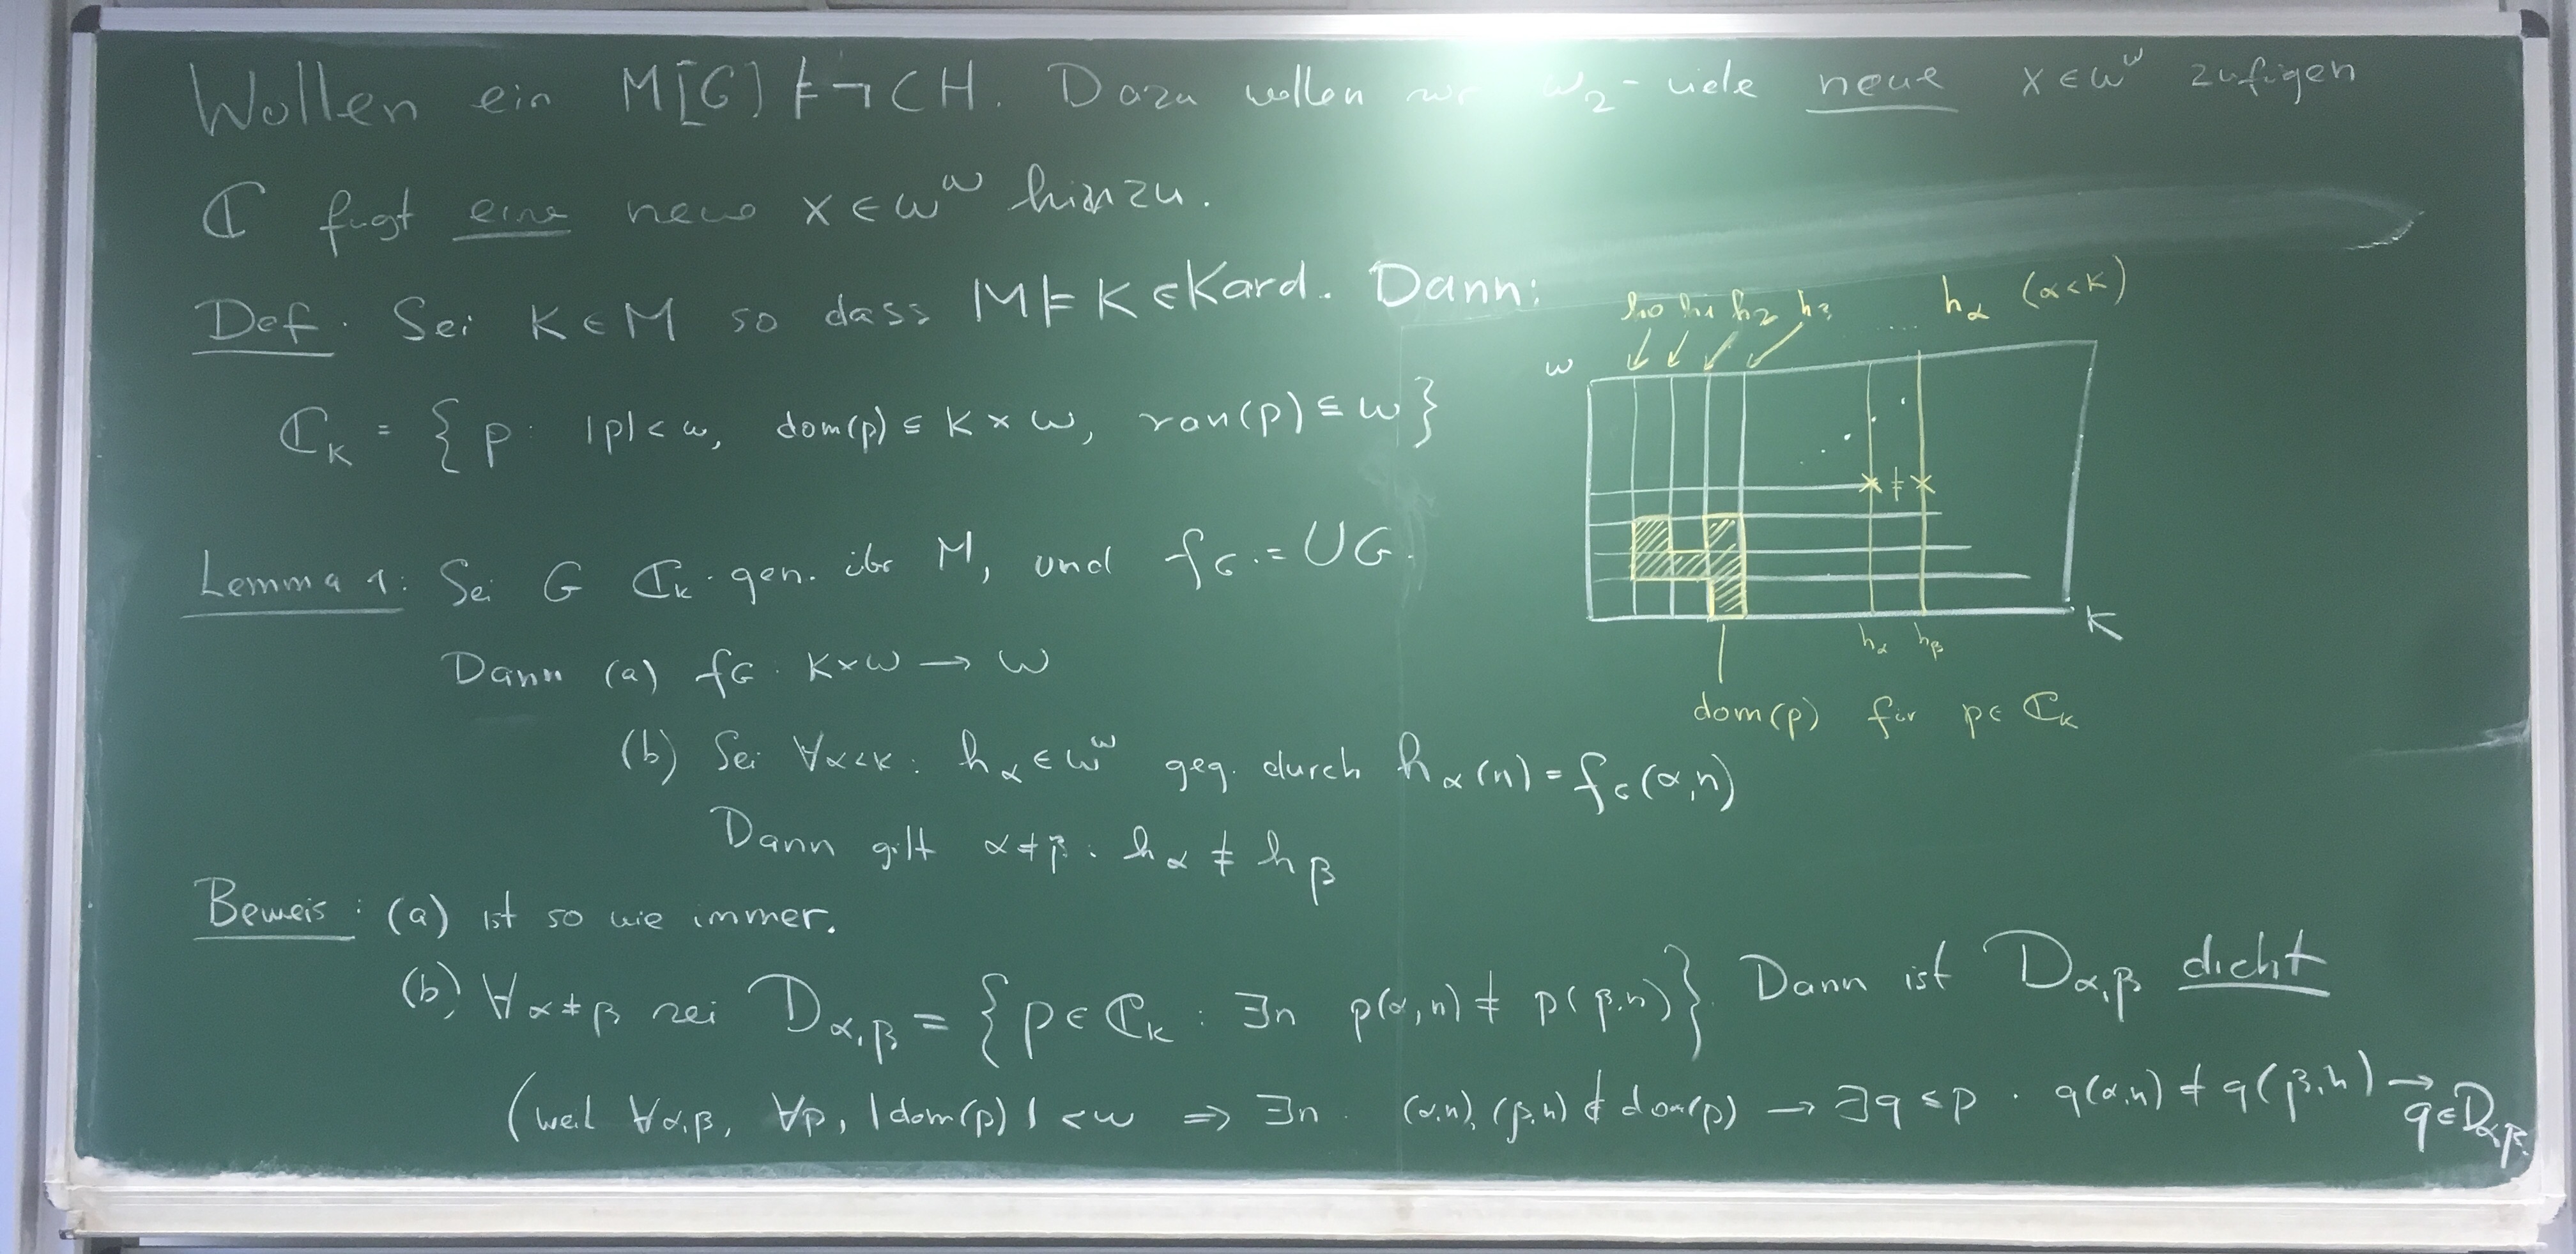 Wollen ein M[G] ⊨ ¬CH. Dazu wollen wir ω₂-viele neue x ∈ ω^ω zufügen
ℂ fügt eine neue x ∈ ω^ω hinzu.
Def. Sei κ ∈ M so dass M ⊨ κ ∈ Kard. Dann:
ℂ_κ = { p : |p| < ω, dom(p) ⊆ κ × ω, ran(p) ⊆ ω }
h₀ h₁ h₂ h₃ .... h_α (α<κ)
ω
≠
κ
h_α h_β
dom(p) für p ∈ ℂ_κ
Lemma 1: Sei G ℂ_κ-gen. über M, und f_G := ∪G.
Dann (a) f_G : κ×ω → ω
(b) Sei ∀α<κ : h_α ∈ ω^ω geg. durch h_α(n) = f_G(α,n)
Dann gilt α≠β : h_α ≠ h_β
Beweis: (a) ist so wie immer.
(b) ∀α≠β sei D_α,β = { p ∈ ℂ_κ : ∃n p(α,n) ≠ p(β,n) }. Dann ist D_α,β dicht
(weil ∀α,β, ∀p, |dom(p)| < ω ⇒ ∃n. (α,n), (β,n) ∉ dom(p) → ∃q ≤ p . q(α,n) ≠ q(β,n) → q ∈ D_α,β